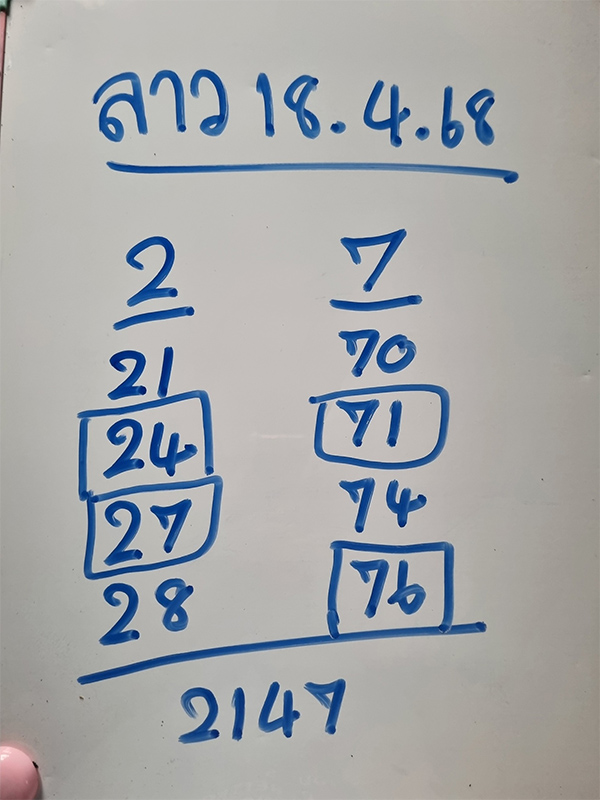 ลาว 18.4.68
2 7
21 70
24 71
27 74
28 76
2147